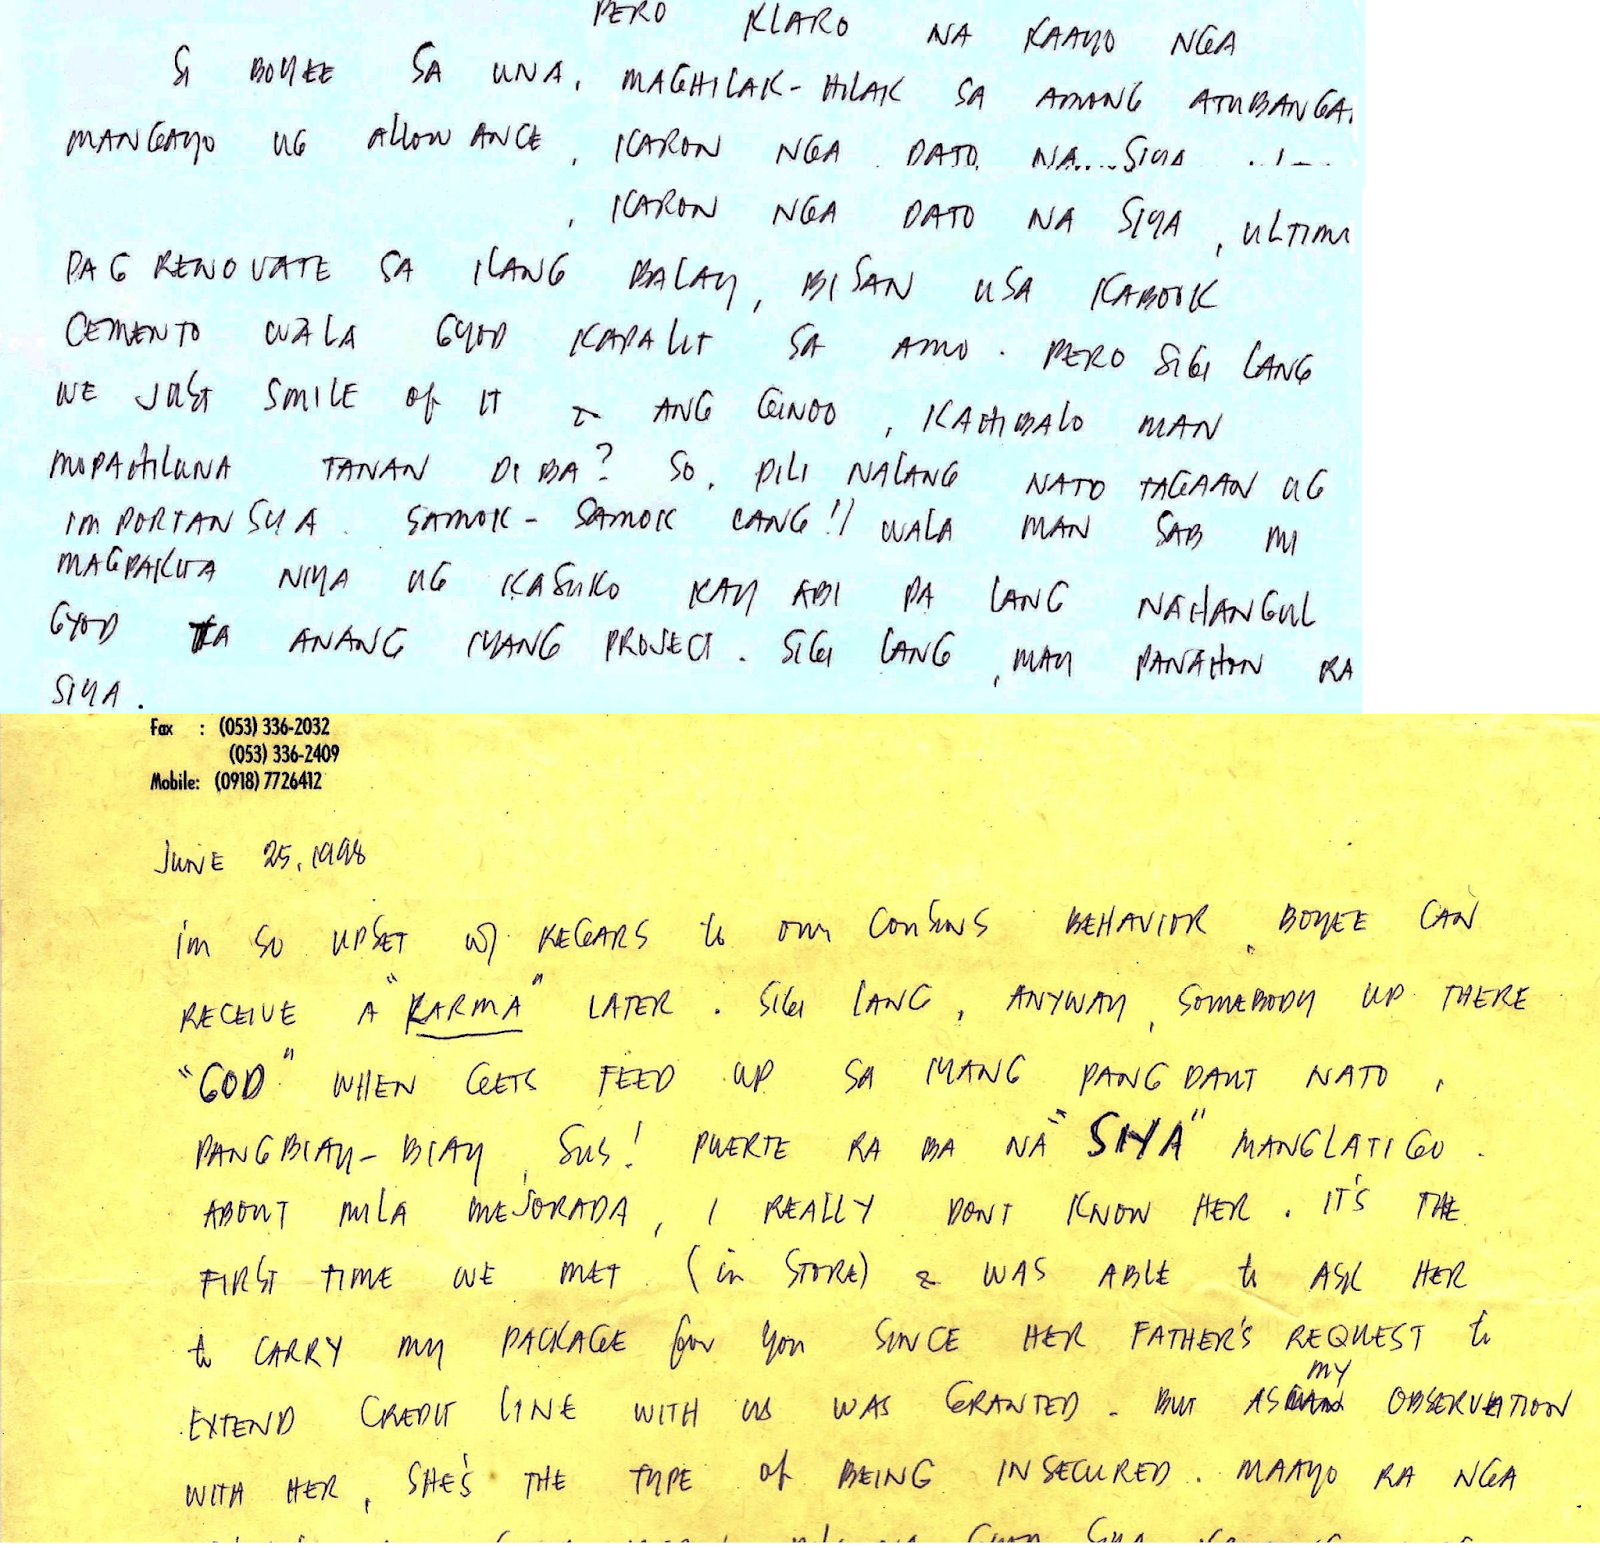 PERO KLARO NA KAAYO NGA
SI BOYEE SA UNA, MAGHILAK-HILAK SA AMONG ATUBANGA
MANGAYO UG ALLOWANCE, KARON NGA DATO NA....SIYA
, KARON NGA DATO NA SIYA, ULTIMO
PAG RENOVATE SA ILANG BALAY, BISAN USA KABOOK
CEMENTO WALA GYOD KAPALIT SA AMO. PERO SIGI LANG
WE JUST SMILE OF IT & ANG GINOO, KAHIBALO MAN
MOPAHILUNA TANAN DI BA? SO, DILI NALANG NATO TAGAAN UG
IMPORTANSYA. SAMOK-SAMOK LANG!! WALA MAN SAB MI
MAGPAKITA NIYA UG KASUKO KAY ABI PA LANG NAHANGUL
GYOD TA ANANG IYANG PROJECT. SIGI LANG, MAY PANAHON RA
SIYA.
Fax : (053) 336-2032
(053) 336-2409
Mobile: (0918) 7726412
JUNE 25, 1998
im SO UPSET W/ REGARS to our Cousins BEHAVIOR, BOYEE CAN
RECEIVE A "KARMA" LATER. SIGI LANG, ANYWAY, SOMEBODY UP THERE
"GOD" WHEN GETS FEED UP SA IYANG PANGDAUT NATO,
PANGBIAY-BIAY, SUS! PUERTE RA BA NA "SIYA" MANGLATIGO.
ABOUT MILA MEJORADA, I REALLY DONT KNOW HER. IT'S THE
FIRST TIME WE MET (in STORE) & WAS ABLE to ASK HER
to CARRY my PACKAGE for you SINCE HER FATHER'S REQUEST to
EXTEND CREDIT LINE WITH US WAS GRANTED. BUT AS MY OBSERVATION
WITH HER, SHE'S THE TYPE of BEING INSECURED. MAAYO RA NGA